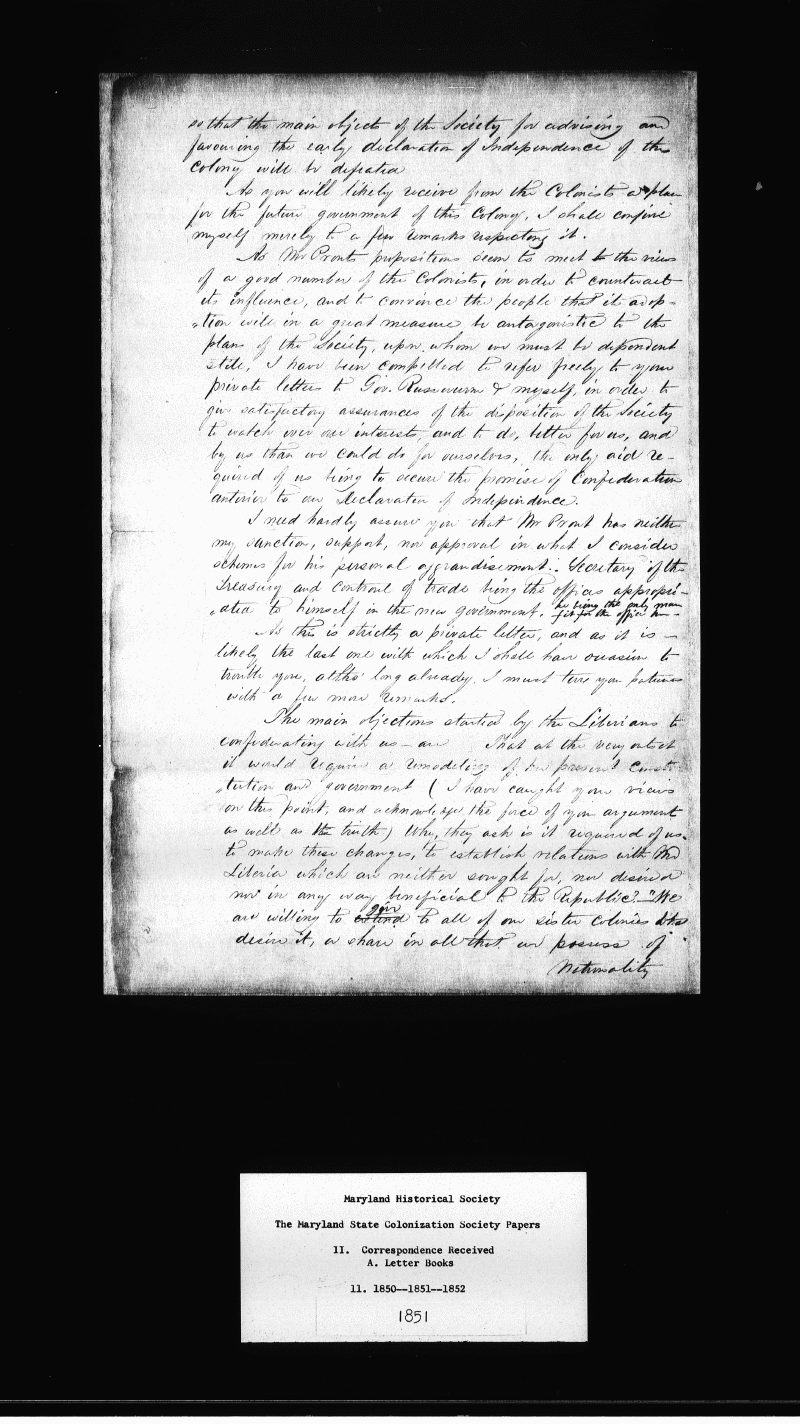 so that the main objects of the Society for advising and
favouring the early declaration of Independence of the
Colony will be defeated
As you will likely receive from the Colonists a plan
for the future government of this Colony, I shall confine
myself merely to a few remarks respecting it.
As Mr Prouts propositions seem to meet the views
of a good number of the Colonists, in order to counteract
its influence, and to convince the people that it adop-
-tion will in a great measure be antagonistic to the
plans of the Society, upon whom we must be dependent
still, I have been compelled to refer freely to your
private letters to Gov. Russwurm & myself, in order to
give satisfactory assurances of the disposition of the Society
to watch over our interests, and to do, better for us, and
by us than we could do for ourselves, the only aid re-
quired of us being to secure the promise of Confederation
anterior to our Declaration of Independence.
I need hardly assure you that Mr Prout has neither
my sanction, support, nor approval in what I consider
schemes for his personal aggrandisement: Secretary of the
Treasury and controul of trade being the offices appropri-
-ated to himself in the new government, he being the only man
fit for the office
As this is strictly a private letter, and as it is -
likely the last one with which I shall have occasion to
trouble you, altho' long already, I must tire you patience
with a few more remarks.
The main objections started by the Liberians to
confederating with us - are That at the very outset
it would require a remodeling of the present Consti-
-tution and government (I have caught your views
on this point, and acknowledge the force of your argument
as well as the truth) Why, they ask is it required of us
to make these changes, to establish relations with Md
Liberia which are neither sought for, nor desired
nor in any way beneficial to the Republic? - "We
give
are willing to extend to all of our sister colonies who
desire it, a share in all that we possess of
Nationality
Maryland Historical Society
The Maryland State Colonization Society Papers
II. Correspondence Received
A. Letter Books
11. 1850--1851--1852
1851